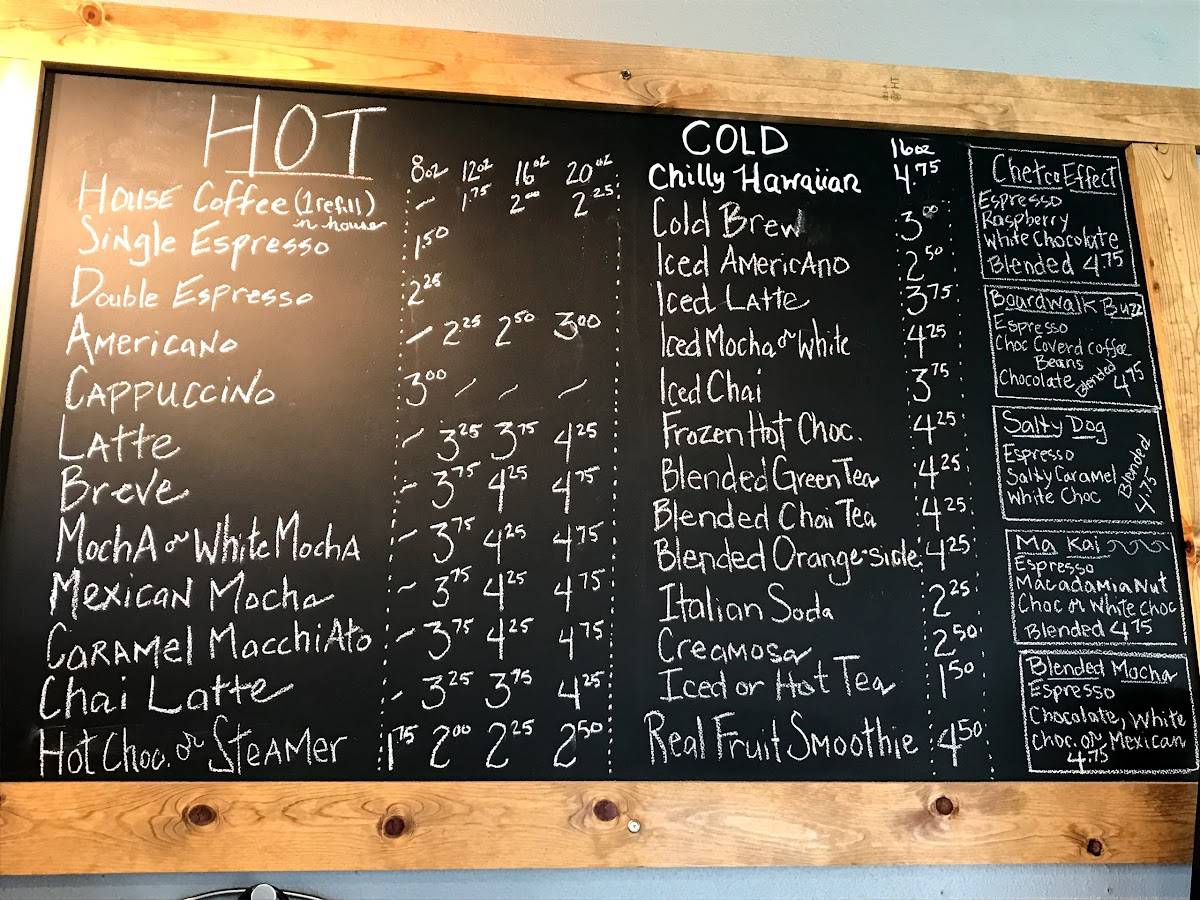 HOT
8oz 12oz 16oz 20oz
House Coffee (1 refill) in house – 1.75 2.00 2.25
Single Espresso 1.50
Double Espresso 2.25
Americano – 2.25 2.50 3.00
Cappuccino 3.00 – – –
Latte – 3.25 3.75 4.25
Breve – 3.75 4.25 4.75
Mocha or White Mocha – 3.75 4.25 4.75
Mexican Mocha – 3.75 4.25 4.75
Caramel Macchiato – 3.75 4.25 4.75
Chai Latte – 3.25 3.75 4.25
Hot Choc. or Steamer 1.75 2.00 2.25 2.50
COLD 16oz
Chilly Hawaiian 4.75
Cold Brew 3.00
Iced Americano 2.50
Iced Latte 3.75
Iced Mocha or White 4.25
Iced Chai 3.75
Frozen Hot Choc. 4.25
Blended Green Tea 4.25
Blended Chai Tea 4.25
Blended Orange-sicle 4.25
Italian Soda 2.25
Creamosa 2.50
Iced or Hot Tea 1.50
Real Fruit Smoothie 4.50
Chetco Effect
Espresso
Raspberry
White Chocolate
Blended 4.75
Boardwalk Buzz
Espresso
Choc Coverd Coffee
Beans
Chocolate Blended 4.75
Salty Dog
Espresso
Salty Caramel
White Choc
Blended 4.75
Ma Kai
Espresso
Macadamia Nut
Choc or White Choc
Blended 4.75
Blended Mocha
Espresso
Chocolate, White
Choc. or Mexican
4.75